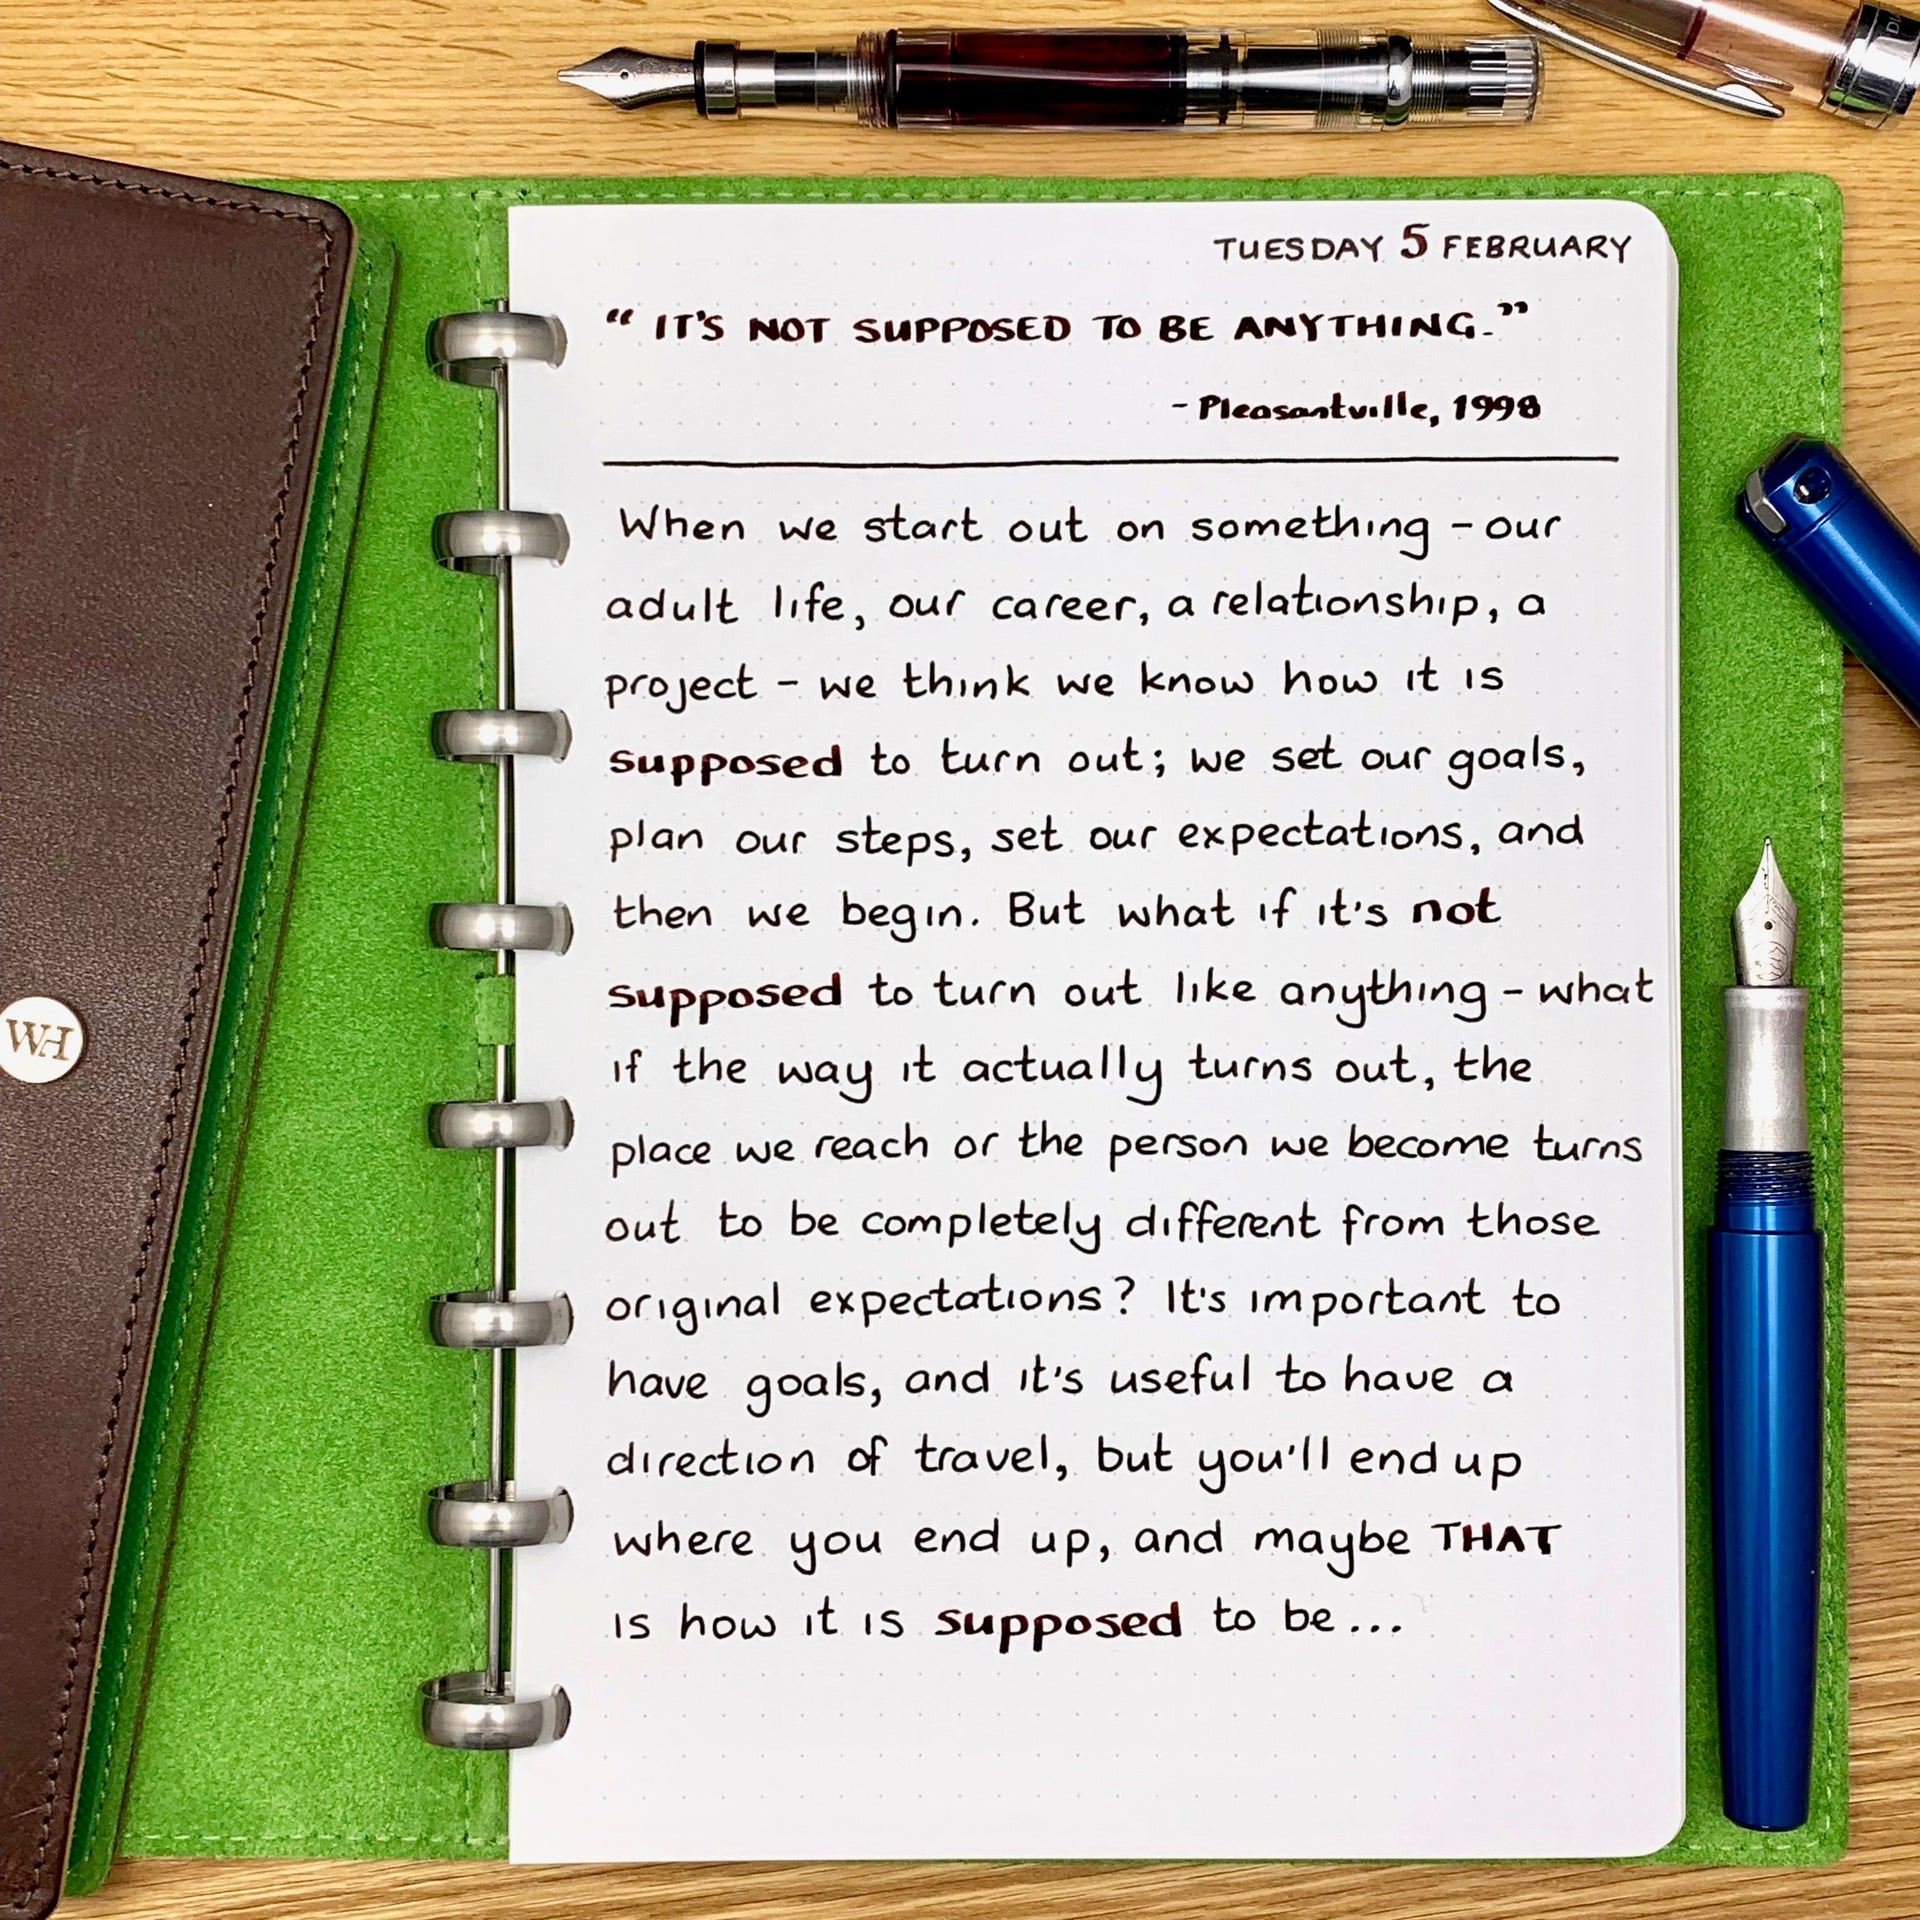 TUESDAY 5 FEBRUARY
“ IT'S NOT SUPPOSED TO BE ANYTHING.”
- Pleasantville, 1998
When we start out on something - our
adult life, our career, a relationship, a
project - we think we know how it is
supposed to turn out; we set our goals,
plan our steps, set our expectations, and
then we begin. But what if it's not
supposed to turn out like anything - what
if the way it actually turns out, the
place we reach or the person we become turns
out to be completely different from those
original expectations? It's important to
have goals, and it's useful to have a
direction of travel, but you'll end up
where you end up, and maybe THAT
is how it is supposed to be...
WH